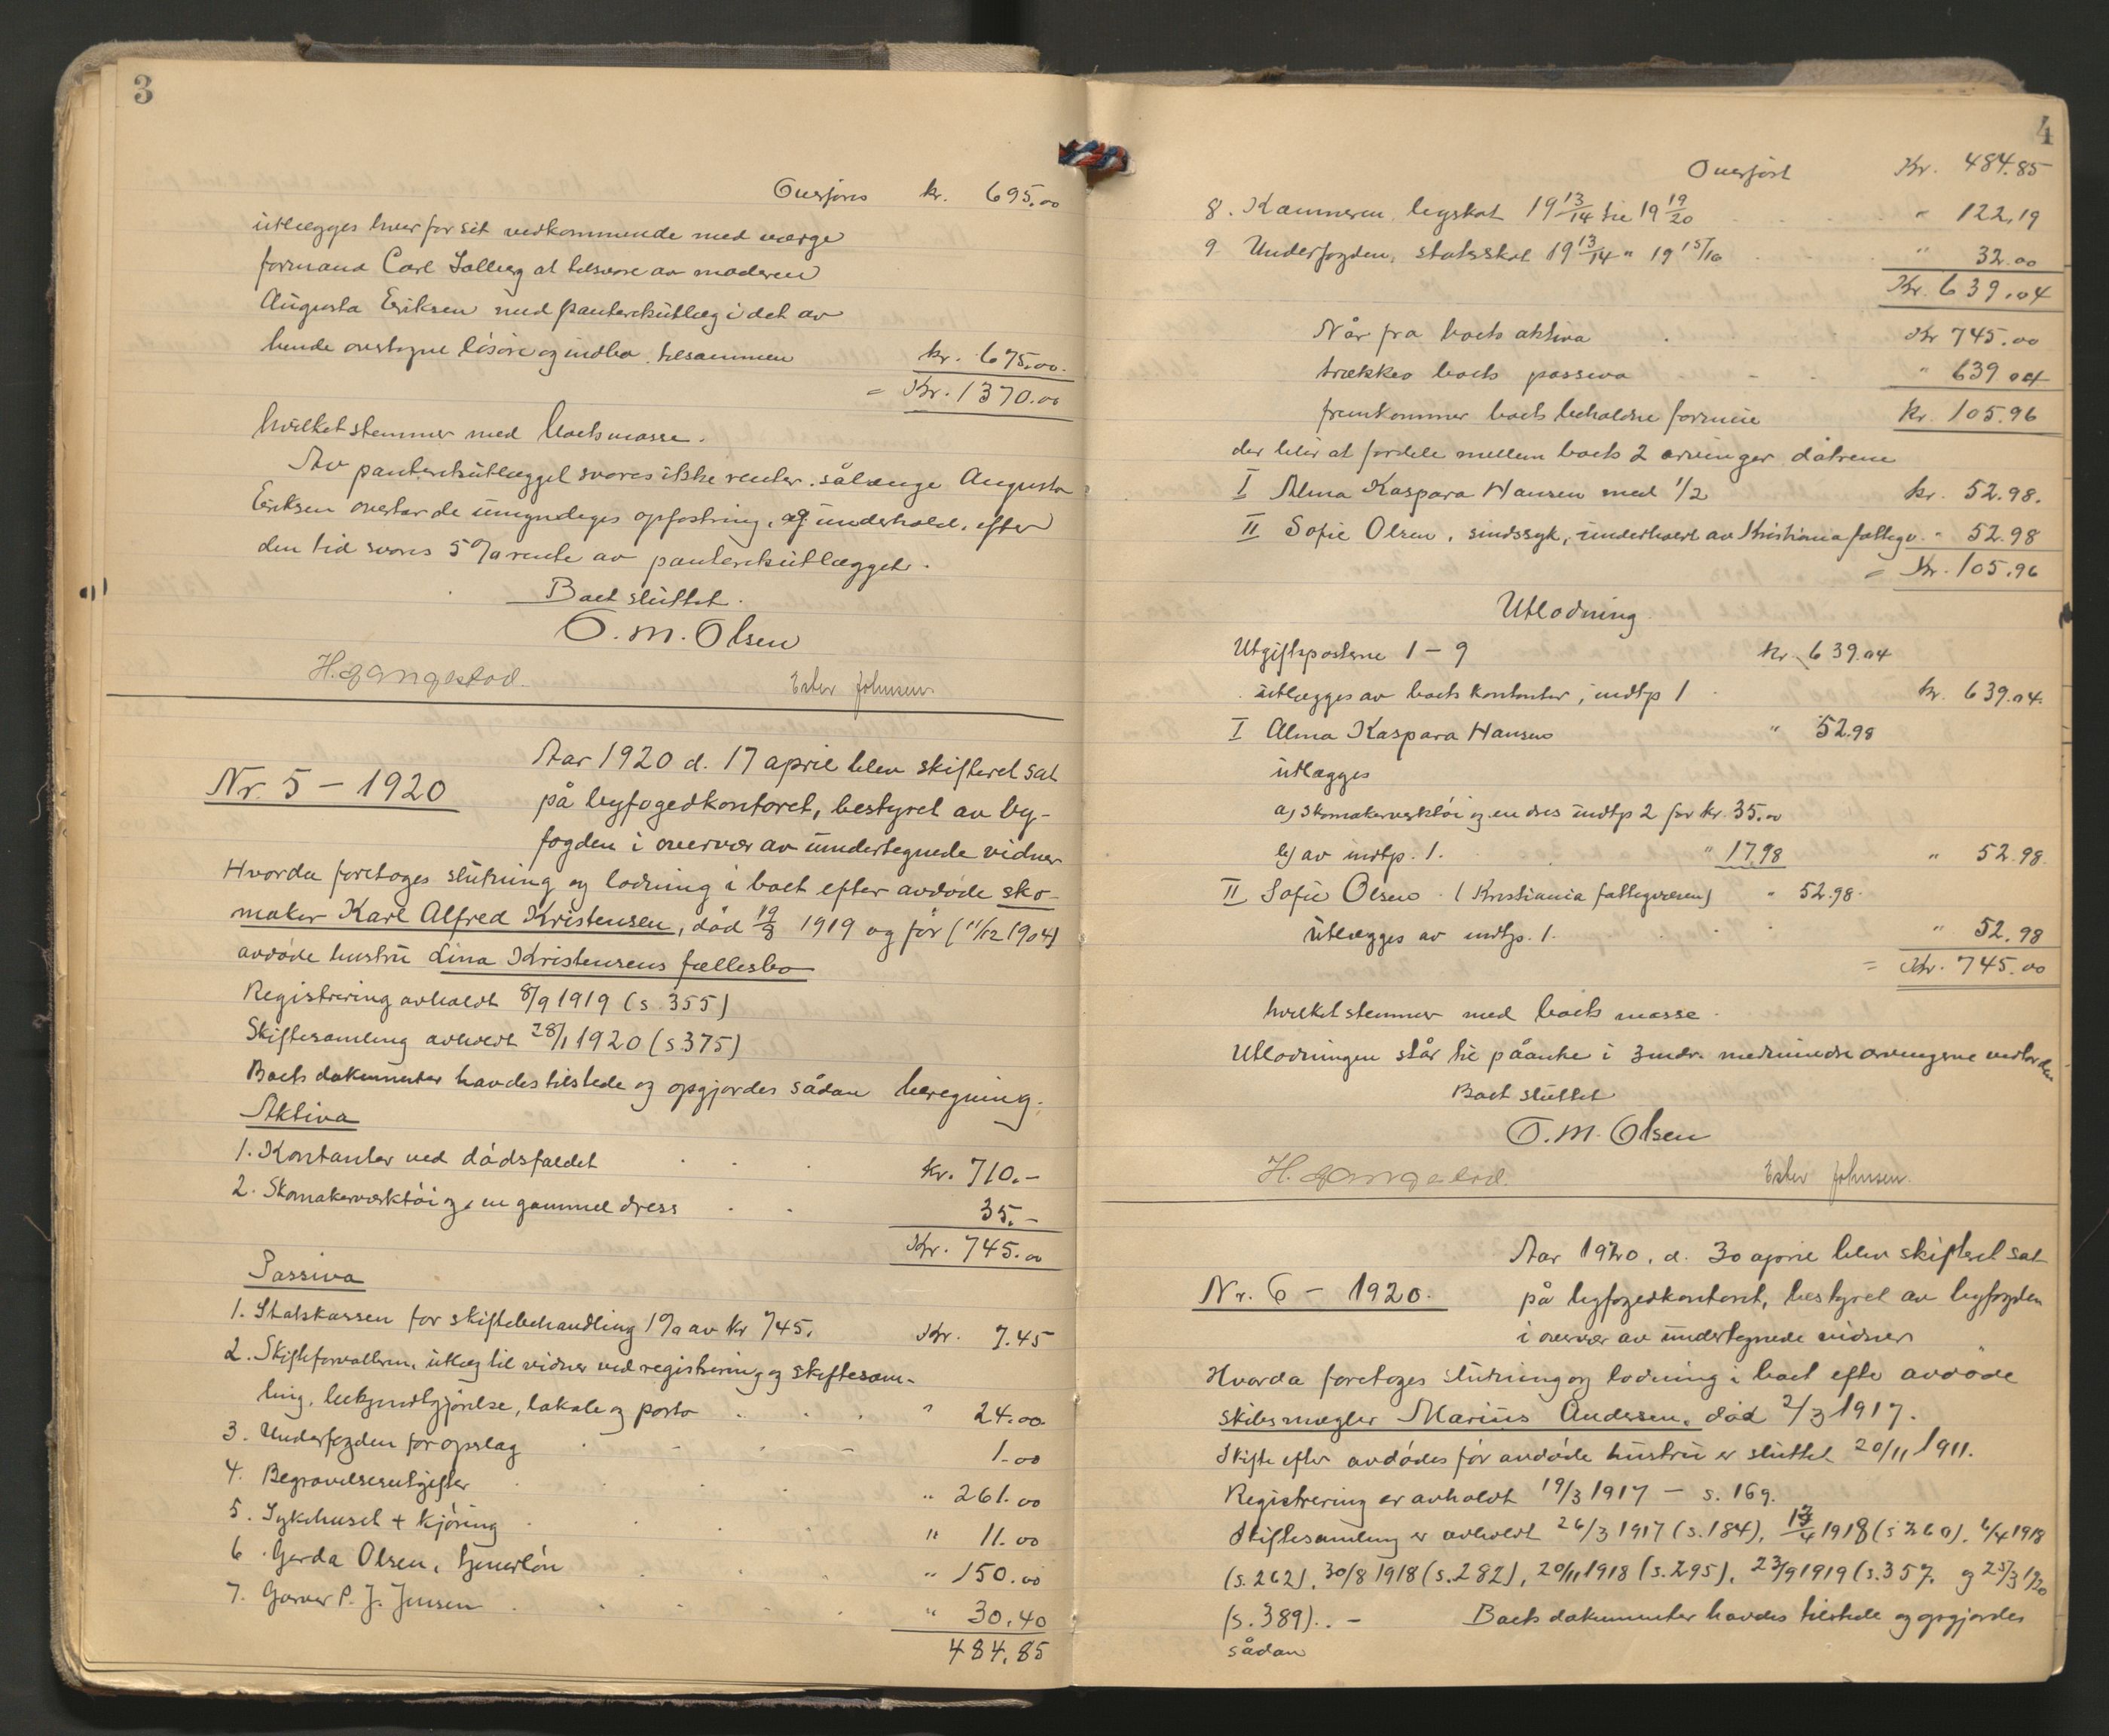 3
Overføres kr. 695.00
utlægges hver for sit vedkommende med værge
formand Carl Solberg at tilsvare av moderen
Augusta Eriksen med panteretsutlæg i det av
hende overtagne løsøre og indbo tilsammen kr. 675.00.
= Kr. 1370.00
hvilket stemmer med boets masse.
Av panteretsutlægget svares ikke renter sålænge Augusta
Eriksen overtar de umyndiges opfostring, og underhold, efter
den tid svares 5% rente av panteretsutlægget.
Boet sluttet.
O. M. Olsen
H. Gangestad. Ester Johnsen
Nr. 5 - 1920
Aar 1920 d. 17 april blev skifteret sat
på byfogedkontoret, bestyret av by-
fogden i overvær av undertegnede vidner
Hvorda foretoges slutning og lodning i boet efter avdøde sko-
maker Karl Alfred Kristensen, død 19/8 1919 og før (11/12 1904)
avdøde hustru Lina Kristensens fællesbo
Registrering avholdt 8/9 1919 (s. 355)
Skiftesamling avholdt 28/1 1920 (s 375)
Boets dokumenter havdes tilstede og opgjordes sådan beregning:
Aktiva
1. Kontanter ved dødsfaldet kr. 710.-
2. Skomakerverktøi og en gammel dress 35.-
Kr. 745.00
Passiva
1. Statskassen for skiftebehandling 1% av kr 745. Kr. 7.45
2. Skifteforvalteren, utlæg til vidner ved registrering og skiftesam-
ling, bekjendtgjørelse, lokale og porto " 24.00
3. Underfogden for opslag 1.00
4. Begravelsesutgifter " 261.00
5. Sykehuset + kjøring " 11.00
6. Gerda Olsen, tjenerløn " 150.00
7. Garver P. J. Jensen " 30.40
484.85
4
Overført Kr. 484.85
8. Kæmneren, byskat 19 13/14 til 19 19/20 " 122.19
9 Underfogden, statsskat 19 13/14 " 19 15/16 " 32.00
Kr. 639.04
Når fra boets aktiva Kr 745.00
trækkes boets passiva " 639.04
fremkommer boets beholdne formue kr. 105.96
der blir at fordele mellem boets 2 arvinger, døtrene
I Alma Kaspara Hansen med 1/2 kr. 52.98.
II Sofie Olsen, sindssyk, underholdt av Kristiania fattigv. " 52.98
= Kr. 105.96
Utlodning
Utgiftsposterne 1 - 9 kr. 639.04
utlægges av boets kontanter, indtp 1 kr. 639.04.
I Alma Kaspara Hansen " 52.98
utlægges
a) skomakerverktøi og en dres indtp 2 for kr. 35.00
b) av indtp. 1. " 17.98 " 52.98.
II Sofie Olsen (Kristiania fattigvæsen) " 52.98.
utlægges av indtp. 1. " 52.98
= Kr. 745.00
hvilket stemmer med boets masse.
Utlodningen står til påanke i 3 mdr. medmindre arvingerne vedtar den
Boet sluttet
O. M. Olsen
H. Gangestad. Ester Johnsen.
Nr. 6 - 1920.
Aar 1920, d. 30 april blev skifteret sat
på byfogedkontoret, bestyret av byfogden
i overvær av undertegnede vidner
Hvorda foretoges slutning og lodning i boet efter avdøde
skibsmægler Marius Andersen, død 2/3 1917.
Skifte efter avdødes før avdøde hustru er sluttet 20/11 1911.
Registrering er avholdt 19/3 1917 - s. 169.
Skiftesamling er avholdt 26/3 1917 (s. 184), 1918 (s 260), 6/4 1918
(s. 262), 30/8 1918 (s. 282), 20/11 1918 (s. 295), 23/9 1919 (s. 357. og 25/3 1920
(s. 389). - Boets dokumenter havdes tilstede og opgjordes
sådan